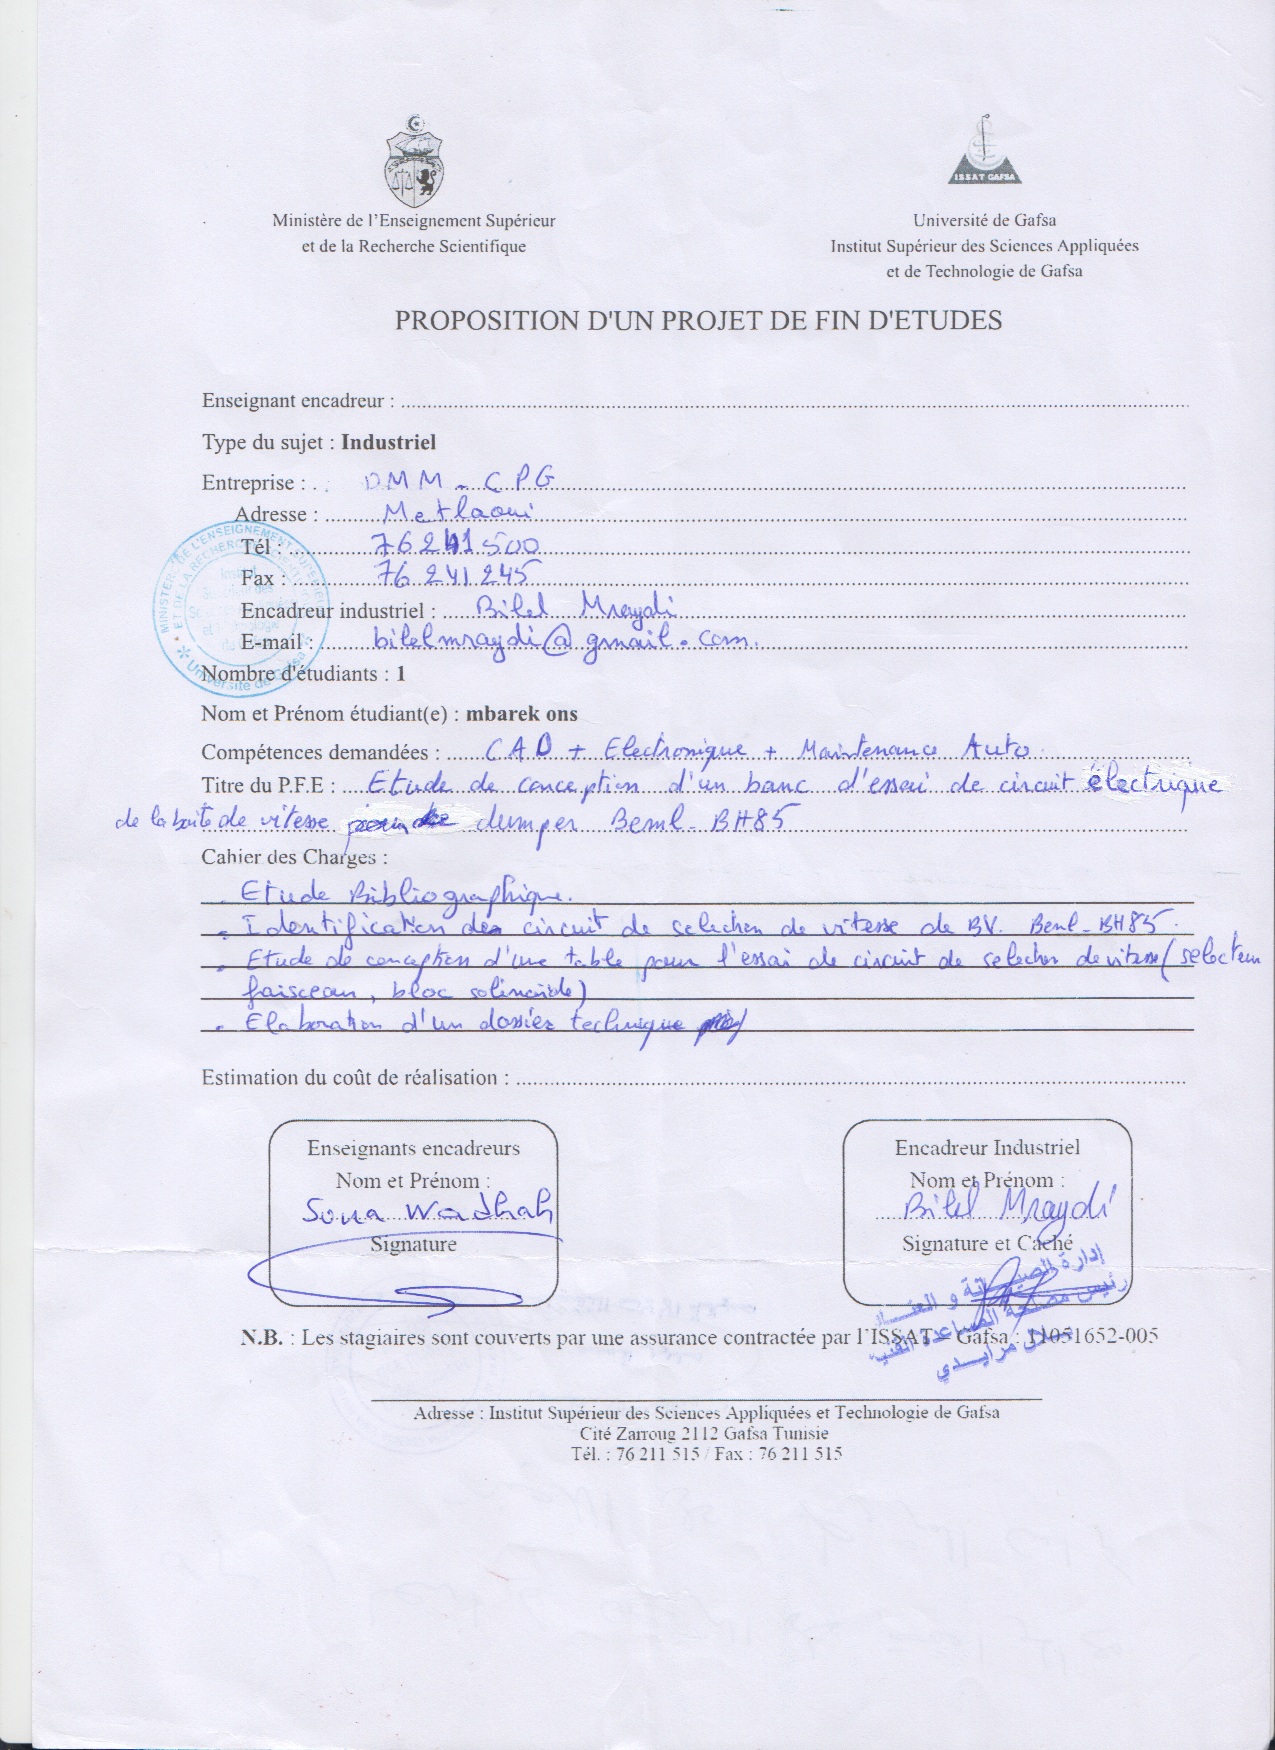 ISSAT GAFSA
Ministère de l'Enseignement Supérieur
et de la Recherche Scientifique
Université de Gafsa
Institut Supérieur des Sciences Appliquées
et de Technologie de Gafsa
PROPOSITION D'UN PROJET DE FIN D'ETUDES
Enseignant encadreur :
Type du sujet : Industriel
Entreprise : DMM - CPG
Adresse : Metlaoui
Tél : 76 241 500
Fax : 76 241 245
Encadreur industriel : Bilel Mraydi
E-mail : bilelmraydi@gmail.com.
Nombre d'étudiants : 1
Nom et Prénom étudiant(e) : mbarek ons
Compétences demandées : CAO + Electronique + Maintenance Auto
Titre du P.F.E : Etude de conception d'un banc d'essai de circuit électrique
de la boite de vitesse dumper Beml - BH85
Cahier des Charges :
. Etude Bibliographique.
. Identification de circuit de selection de vitesse de BV. Beml - BH85.
. Etude de conception d'une table pour l'essai de circuit de selection de vitesse (selecteur
faisceau, bloc solénoïde)
. Elaboration d'un dossier technique
Estimation du coût de réalisation :
Enseignants encadreurs
Nom et Prénom :
Soua Wadhah
Signature
Encadreur Industriel
Nom et Prénom :
Bilel Mraydi
Signature et Caché
N.B. : Les stagiaires sont couverts par une assurance contractée par l'ISSAT – Gafsa : 11051652-005
Adresse : Institut Supérieur des Sciences Appliquées et Technologie de Gafsa
Cité Zarroug 2112 Gafsa Tunisie
Tél. : 76 211 515 / Fax : 76 211 515